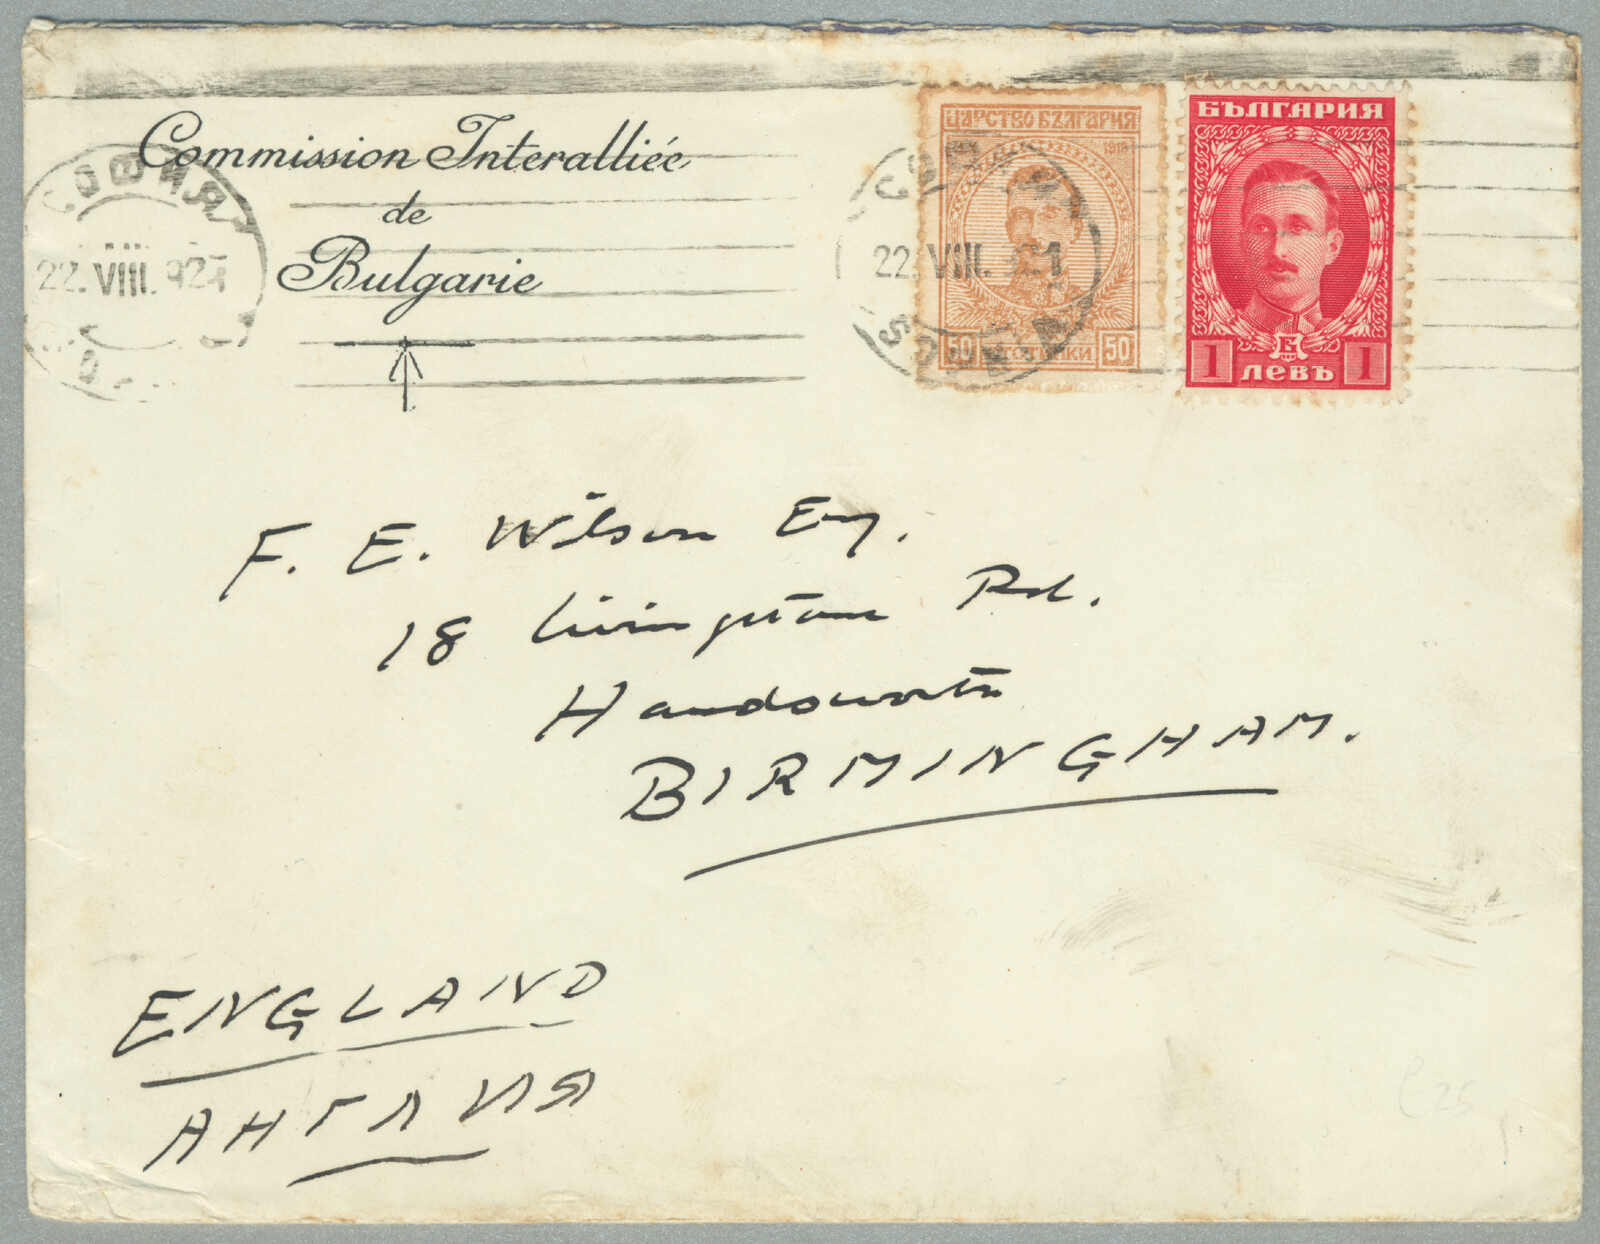 Commission Interalliée
de
Bulgarie
СОФИЯ
22.VIII.921
СОФИЯ
22.VIII.921
SOFIA
ЦАРСТВО БЪЛГАРИЯ
1919
50 СТОТИНКИ 50
БЪЛГАРИЯ
1 ЛЕВЪ 1
F. E. Wilson Esq.
18 Livingstone Rd.
Handsworth
BIRMINGHAM.
ENGLAND
АНГЛИЯ